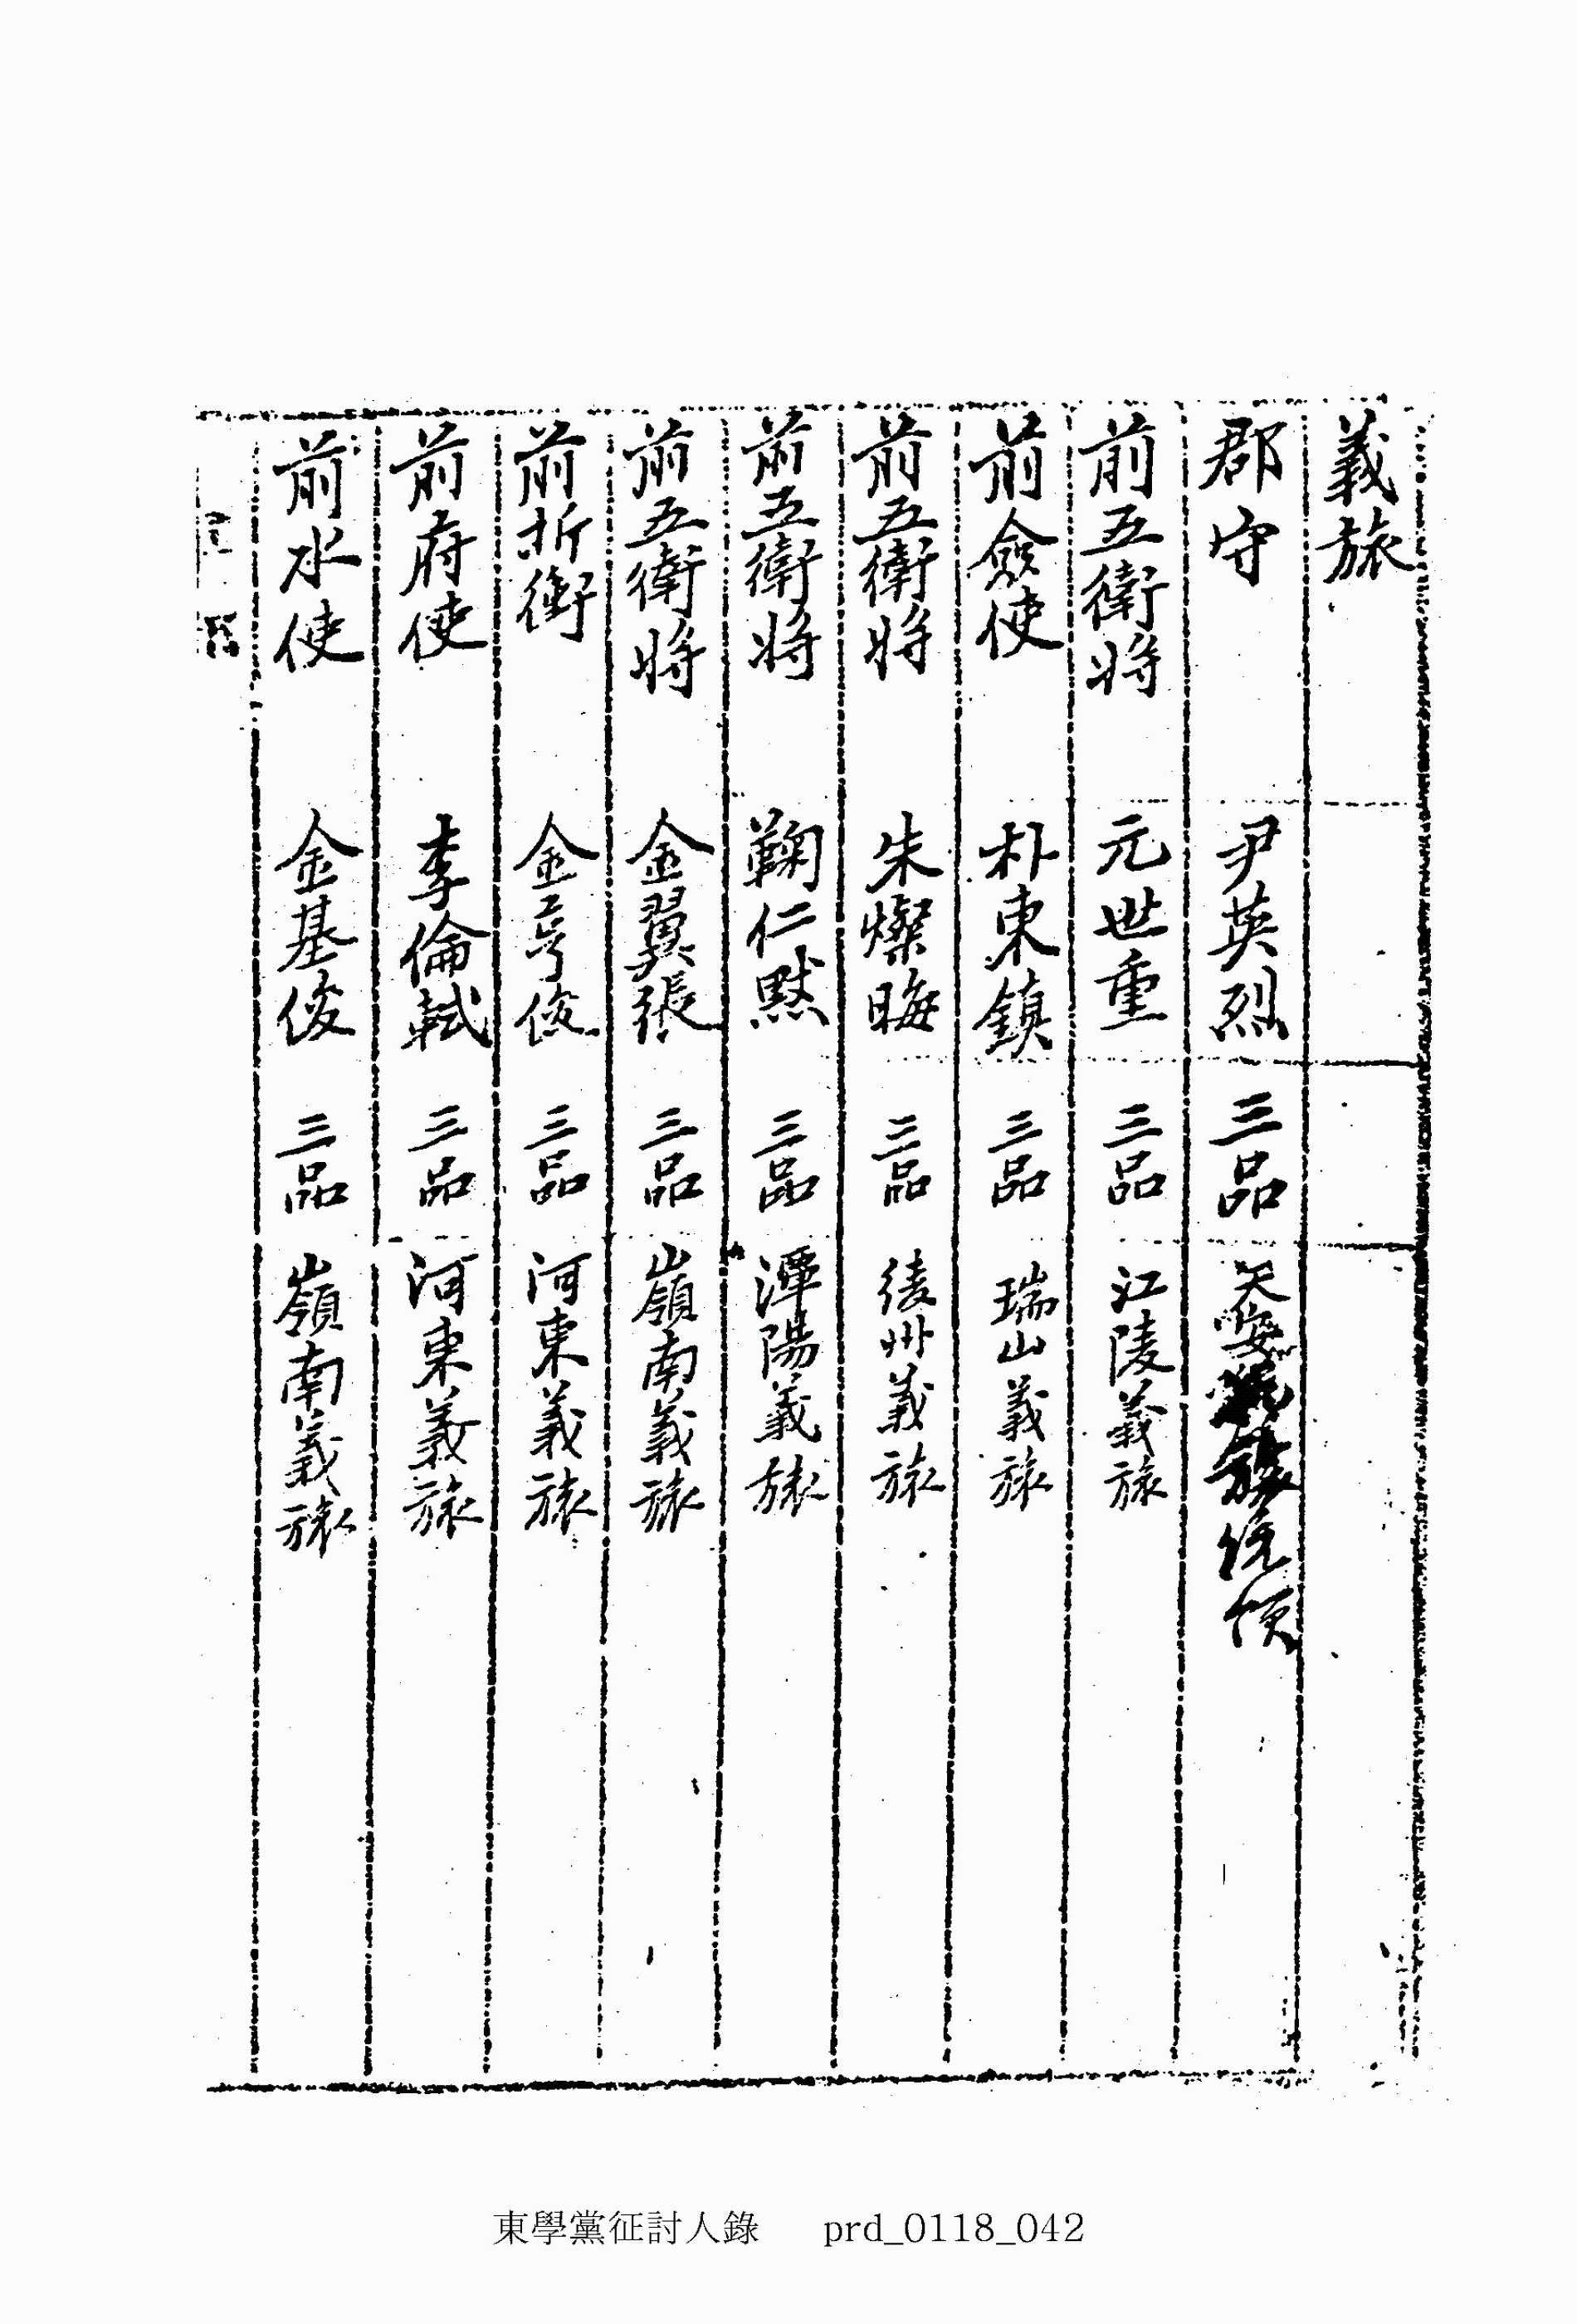 義旅
郡守 尹英烈 三品 天安義旅統領
前五衛將 元世重 三品 江陵義旅
前僉使 朴東鎮 三品 瑞山義旅
前五衛將 朱燦晦 三品 綾州義旅
前五衛將 鞠仁默 三品 潭陽義旅
前五衛將 金翼張 三品 嶺南義旅
前折衝 金亨俊 三品 河東義旅
前府使 李倫軾 三品 河東義旅
前水使 金基俊 三品 嶺南義旅
東學黨征討人錄 prd_0118_042